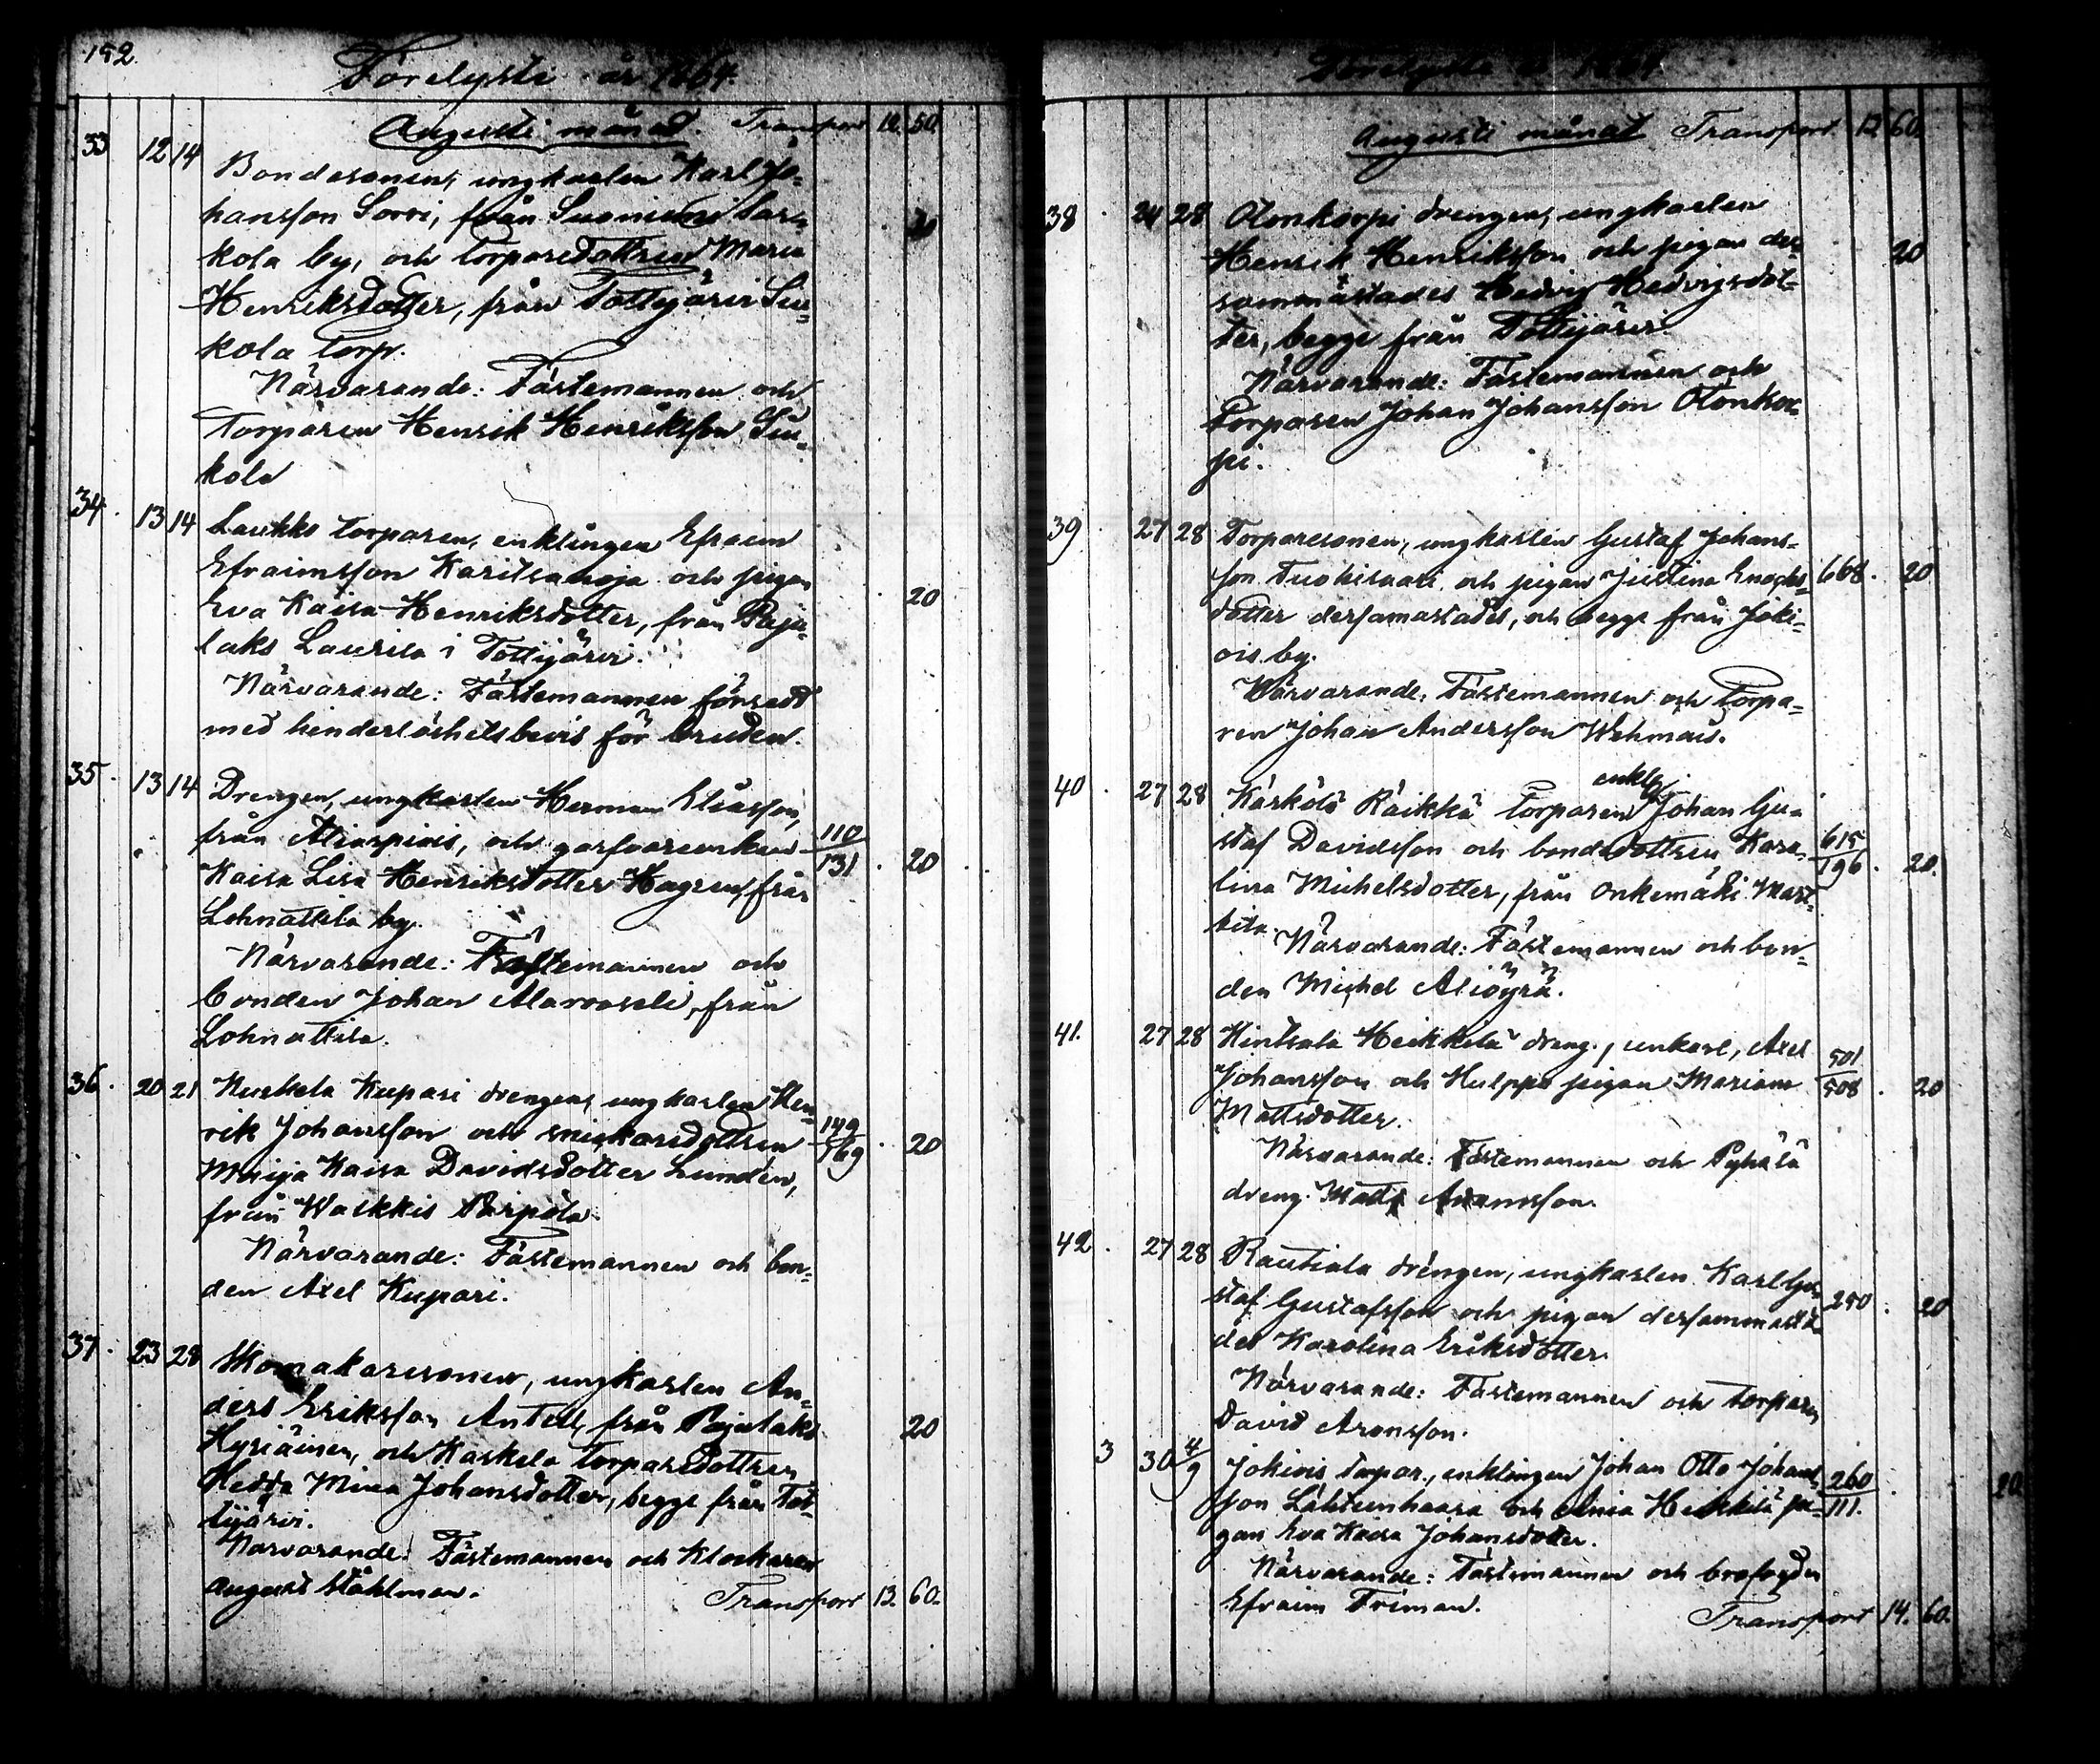 192.
Förelysta år 1864.
Augusti månad. Transport 12. 50.
33 12 14 Bondesonen, ungkarlen Karl Jo-
hansson Sorri, från Suoniemi Sar-
kola by, och torparedottren Maria 20
Henriksdotter, från Tottijärvi Suk-
kola torp.
Närvarande: Fästemannen och
torparen Henrik Henriksson Suk-
kola
34. 13 14 Laukko torparen, enklingen Efraim
Efraimsson Karitsanoja och pigan
Eva Kaisa Henriksdotter, från Paju- 20
laks Laurila i Tottijärvi.
Närvarande: Fästemannen försedt
med hinderlöshetsbevis för bruden.
35. 13 14 Drengen, ungkarlen Herman Eliasson,
från Aliaspiois, och garfvareenkan 110
Kaisa Lisa Henriksdotter Hagren, från 131. 20
Lehnattila by.
Närvarande: Fästemannen och
bonden Johan Alarooseli, från
Lohnattila.
36. 20 21 Nuskala Kupari drengen, ungkarlen Hen-
rik Johansson och snickaredottren 149
Maija Kaisa Davidsdotter Lundén, 169. 20
från Waskkis Pärpölä.
Närvarande: Fästemannen och bon-
den Axel Kupari.
37. 23 28 Skomakaresonen, ungkarlen An-
ders Eriksson Antell, från Pajulaks 20
Hyriäinen, och Kaskela torparedottren
Hedda Mina Johansdotter, begge från Tot-
tijärvi.
Närvarande: Fästemannen och Klockaren
August Ståhlman.
Transport 13. 60.
Förelysta år 1864
Augusti månad Transport. 13 60.
38 24 28 Otonkorpi drengen, ungkarlen
Henrik Henriksson och pigan der- 20
sammastades Hedvig Hedvigsdot-
ter, begge från Tottijärvi
Närvarande: Fästemannen och
Torparen Johan Johansson Otonkor-
pi.
39 27 28 Torparesonen, ungkarlen Gustaf Johans-
son Tuokisaari och pigan Justina Enochs- 668. 20
dotter dersamastades, och begge från Joki-
ois by.
Närvarande: Fästemannen och torpa-
ren Johan Andersson Wehmais.
40. 27 28 Kärkölä Räikkä torparen enkl. Johan Gu-
staf Davidsson och bondedottren Karo- 615
lina Michelsdotter, från Onkemäki Mart- 196. 20.
tila.
Närvarande: Fästemannen och bon-
den Michel Aliöyrä.
41. 27 28 Hintsala Heikkilä dreng., unkarl, Axel 501
Johansson och Hulppo pigan Mariana 508. 20
Mattsdotter.
Närvarande: Fästemannen och Pyhälä
dreng. Matts Adamsson.
42. 27 28 Rautiala drengen, ungkarlen Karl Gu-
staf Gustafsson och pigan dersammasta- 250. 20
des Karolina Eriksdotter.
Närvarande: Fästemannen och torparen
David Aronsson.
3 30 4/9 Jokiois torpar., enklingen Johan Otto Johans- 260
son Lähteenhaara och Ania Heikkilä pi- 111. 20
gan Eva Kaisa Johansdotter.
Närvarande: Fästemannen och brofogden
Efraim Friman.
Transport 14. 60.